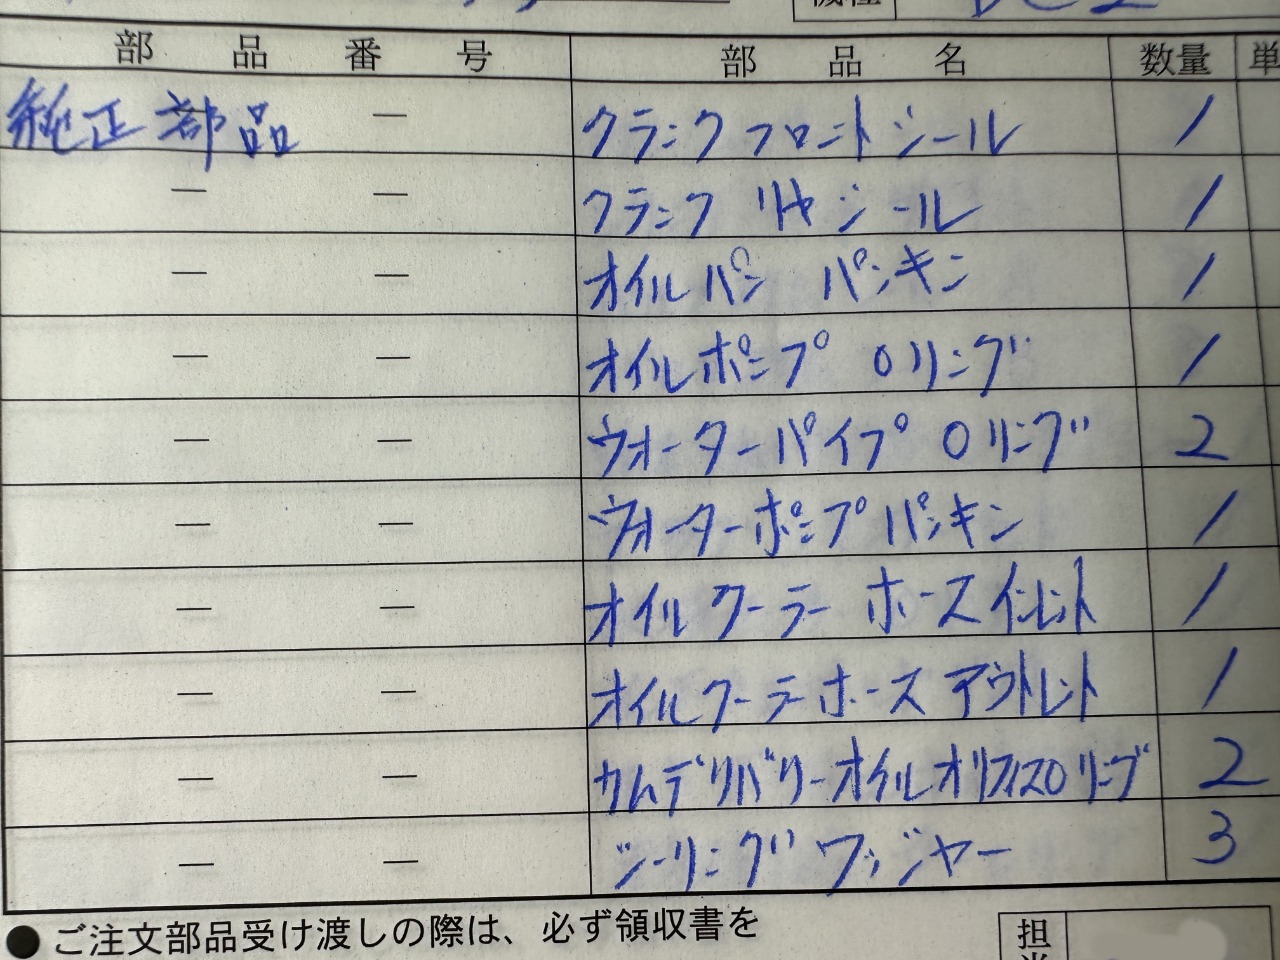 部品番号 部品名 数量 単
純正部品 — クランクフロントシール 1
— — クランク リヤシール 1
— — オイルパン パッキン 1
— — オイルポンプ Oリング 1
— — ウォーターパイプ Oリング 2
— — ウォーターポンプパッキン 1
— — オイルクーラーホースインレット 1
— — オイルクーラーホースアウトレット 1
— — カムデリバリーオイルオリフィスOリング 2
— — シーリングワッシャー 3
●ご注文部品受け渡しの際は、必ず領収書を
担